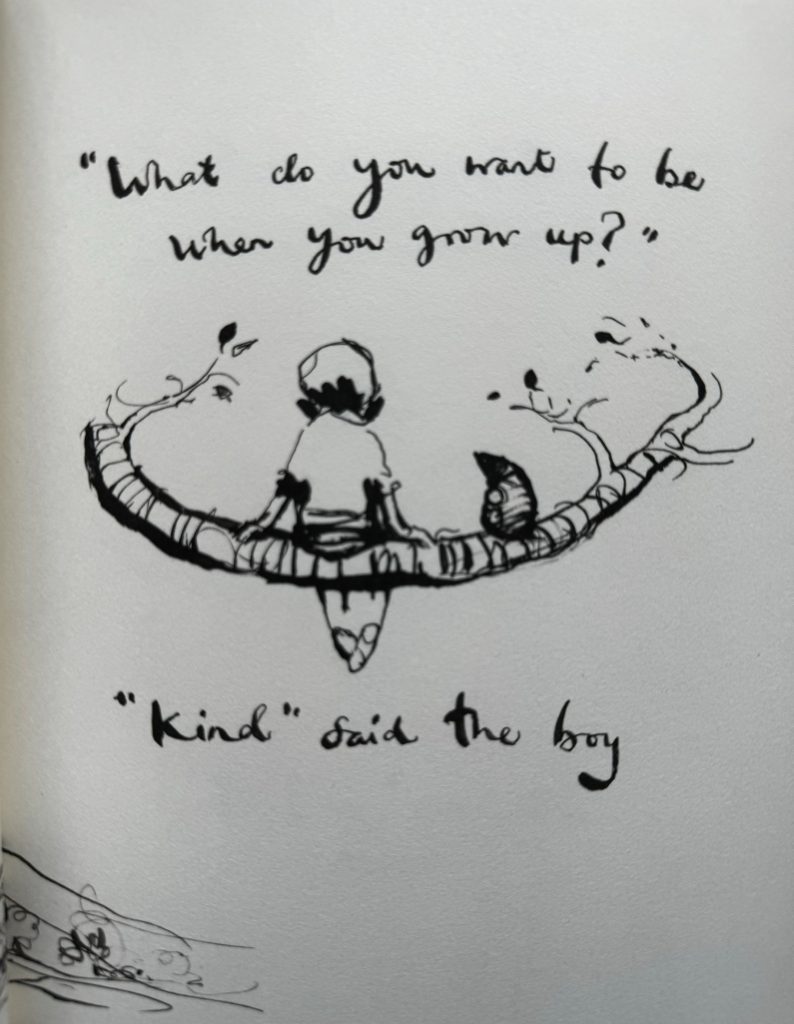 "What do you want to be
when you grow up?"
"Kind" said the boy